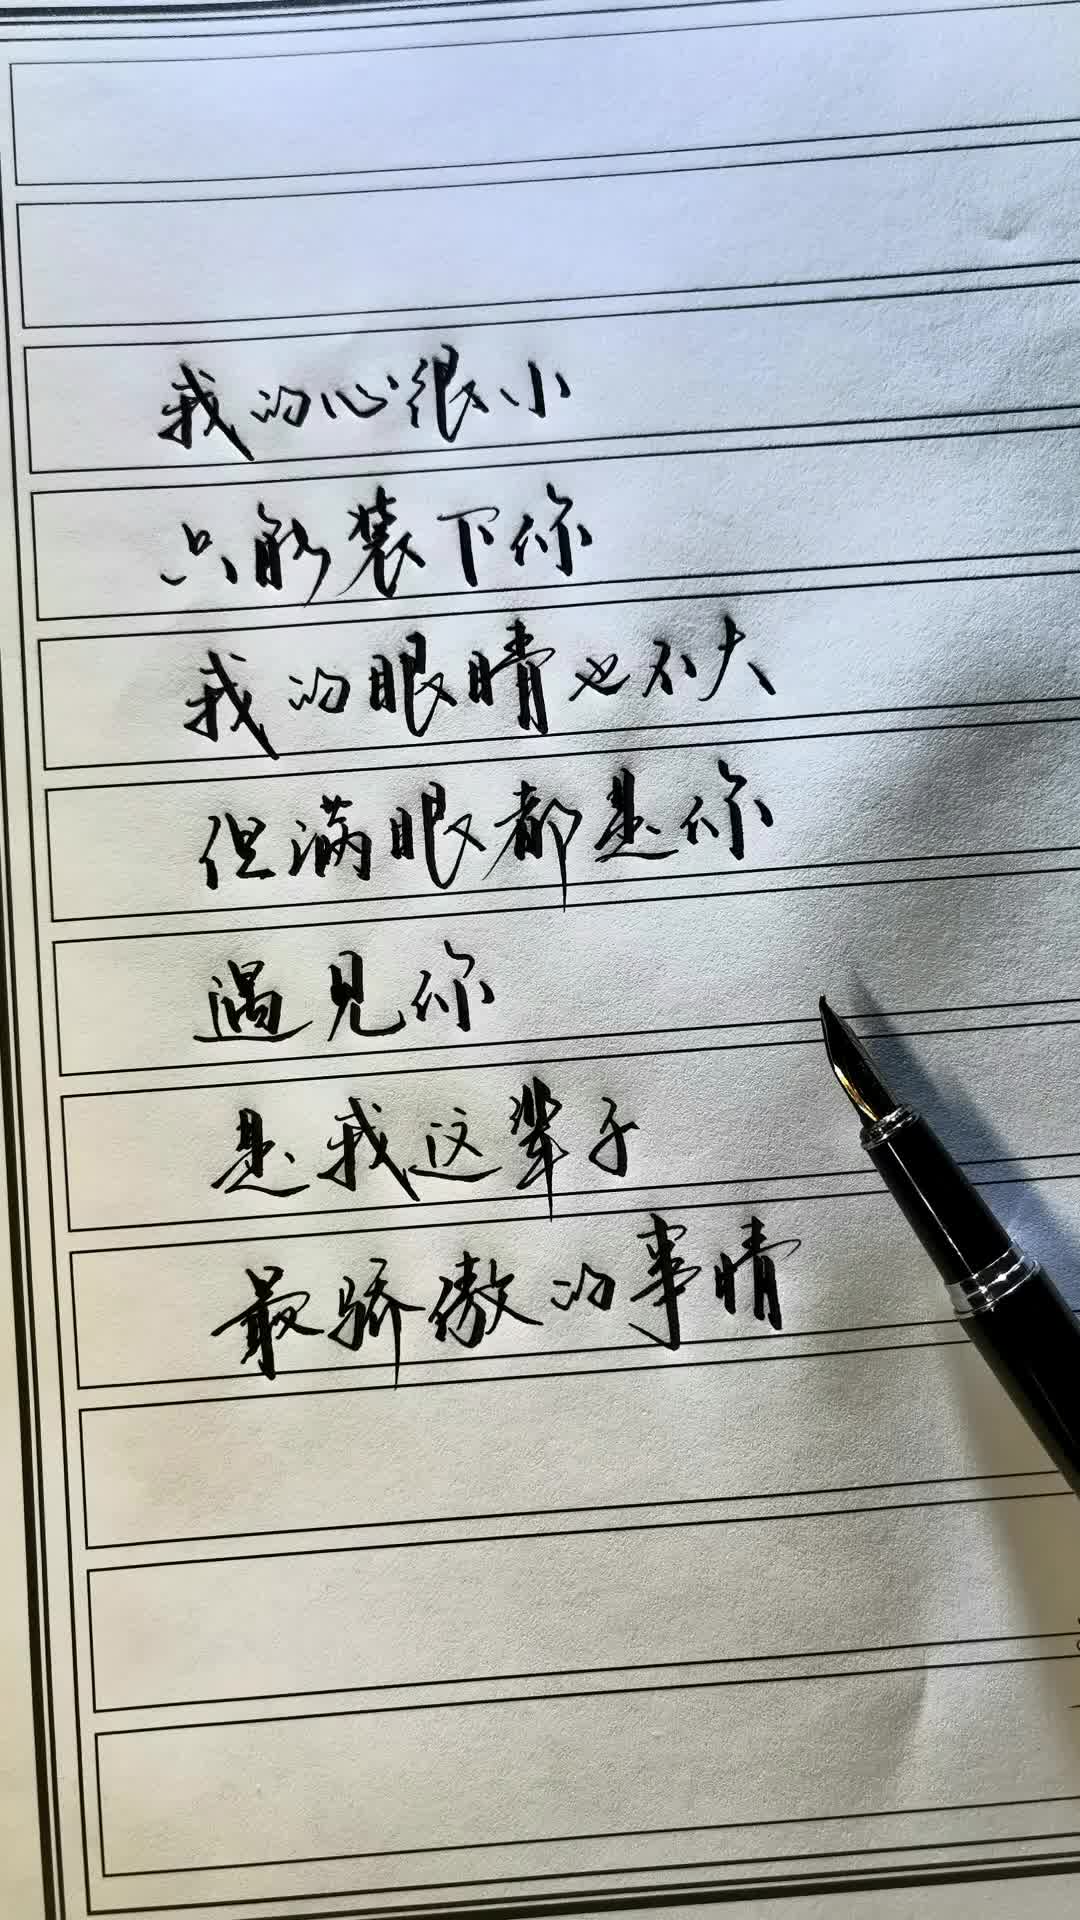 我的心很小
只能装下你
我的眼睛也不大
但满眼都是你
遇见你
是我这辈子
最骄傲的事情